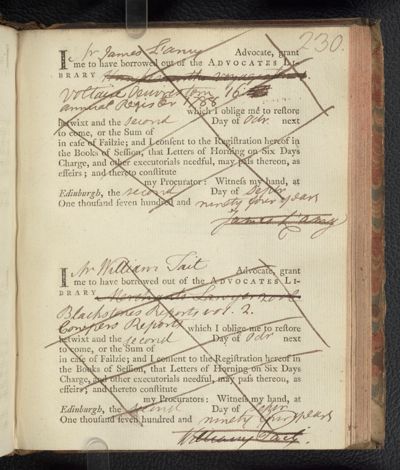 230.
I, Mr James L'amy Advocate, grant
me to have borrowed out of the ADVOCATES LI-
BRARY
Voltaire Oeuvres Tom 16
annual Register 1788
which I oblige me to restore
betwixt and the second Day of Octr. next
to come, or the Sum of
in case of Failzie; and I consent to the Registration hereof in
the Books of Session, that Letters of Horning on Six Days
Charge, and other executorials needful, may pass thereon, as
effeirs; and thereto constitute
my Procurator: Witness my hand, at
Edinburgh, the second Day of Septr
One thousand seven hundred and ninety four years
James L'amy
I, Mr William Tait Advocate, grant
me to have borrowed out of the ADVOCATES LI-
BRARY
Blackstones Reports vol. 2.
Reports which I oblige me to restore
betwixt and the second Day of Octr next
to come, or the Sum of
in case of Failzie; and I consent to the Registration hereof in
the Books of Session, that Letters of Horning on Six Days
Charge, and other executorials needful, may pass thereon, as
effeirs; and thereto constitute
my Procurators: Witness my hand, at
Edinburgh, the second Day of Septr
One thousand seven hundred and ninety four years
William Tait.